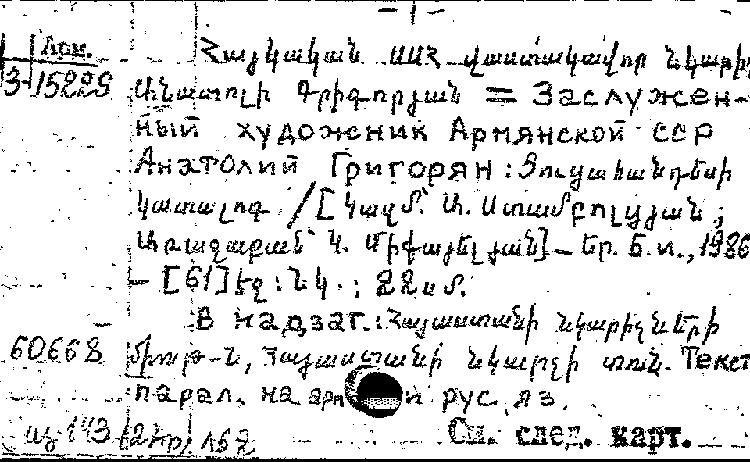 – 1 –
Лом.
Հայկական ՍՍՀ վաստակավոր նկարիչ
3-15229
Անատոլի Գրիգորյան = Заслужен-
ный художник Армянской сср
Анатолий Григорян : Ցուցահանդեսի
կատալոգ / [Կազմ՝ Ա. Ստամբոլցյան ;
Առաջաբան՝ Կ. Միքայելյան]. – Եր. Б. и., 1986
– [61] էջ : նկ. ; 22 սմ.
В надзаг.: Հայաստանի նկարիչների
60668
միութ-ն, Հայաստանի նկարչի տուն. Текст
парал. на арм и рус. яз.
143 (2Ар) 162
См. след. карт.